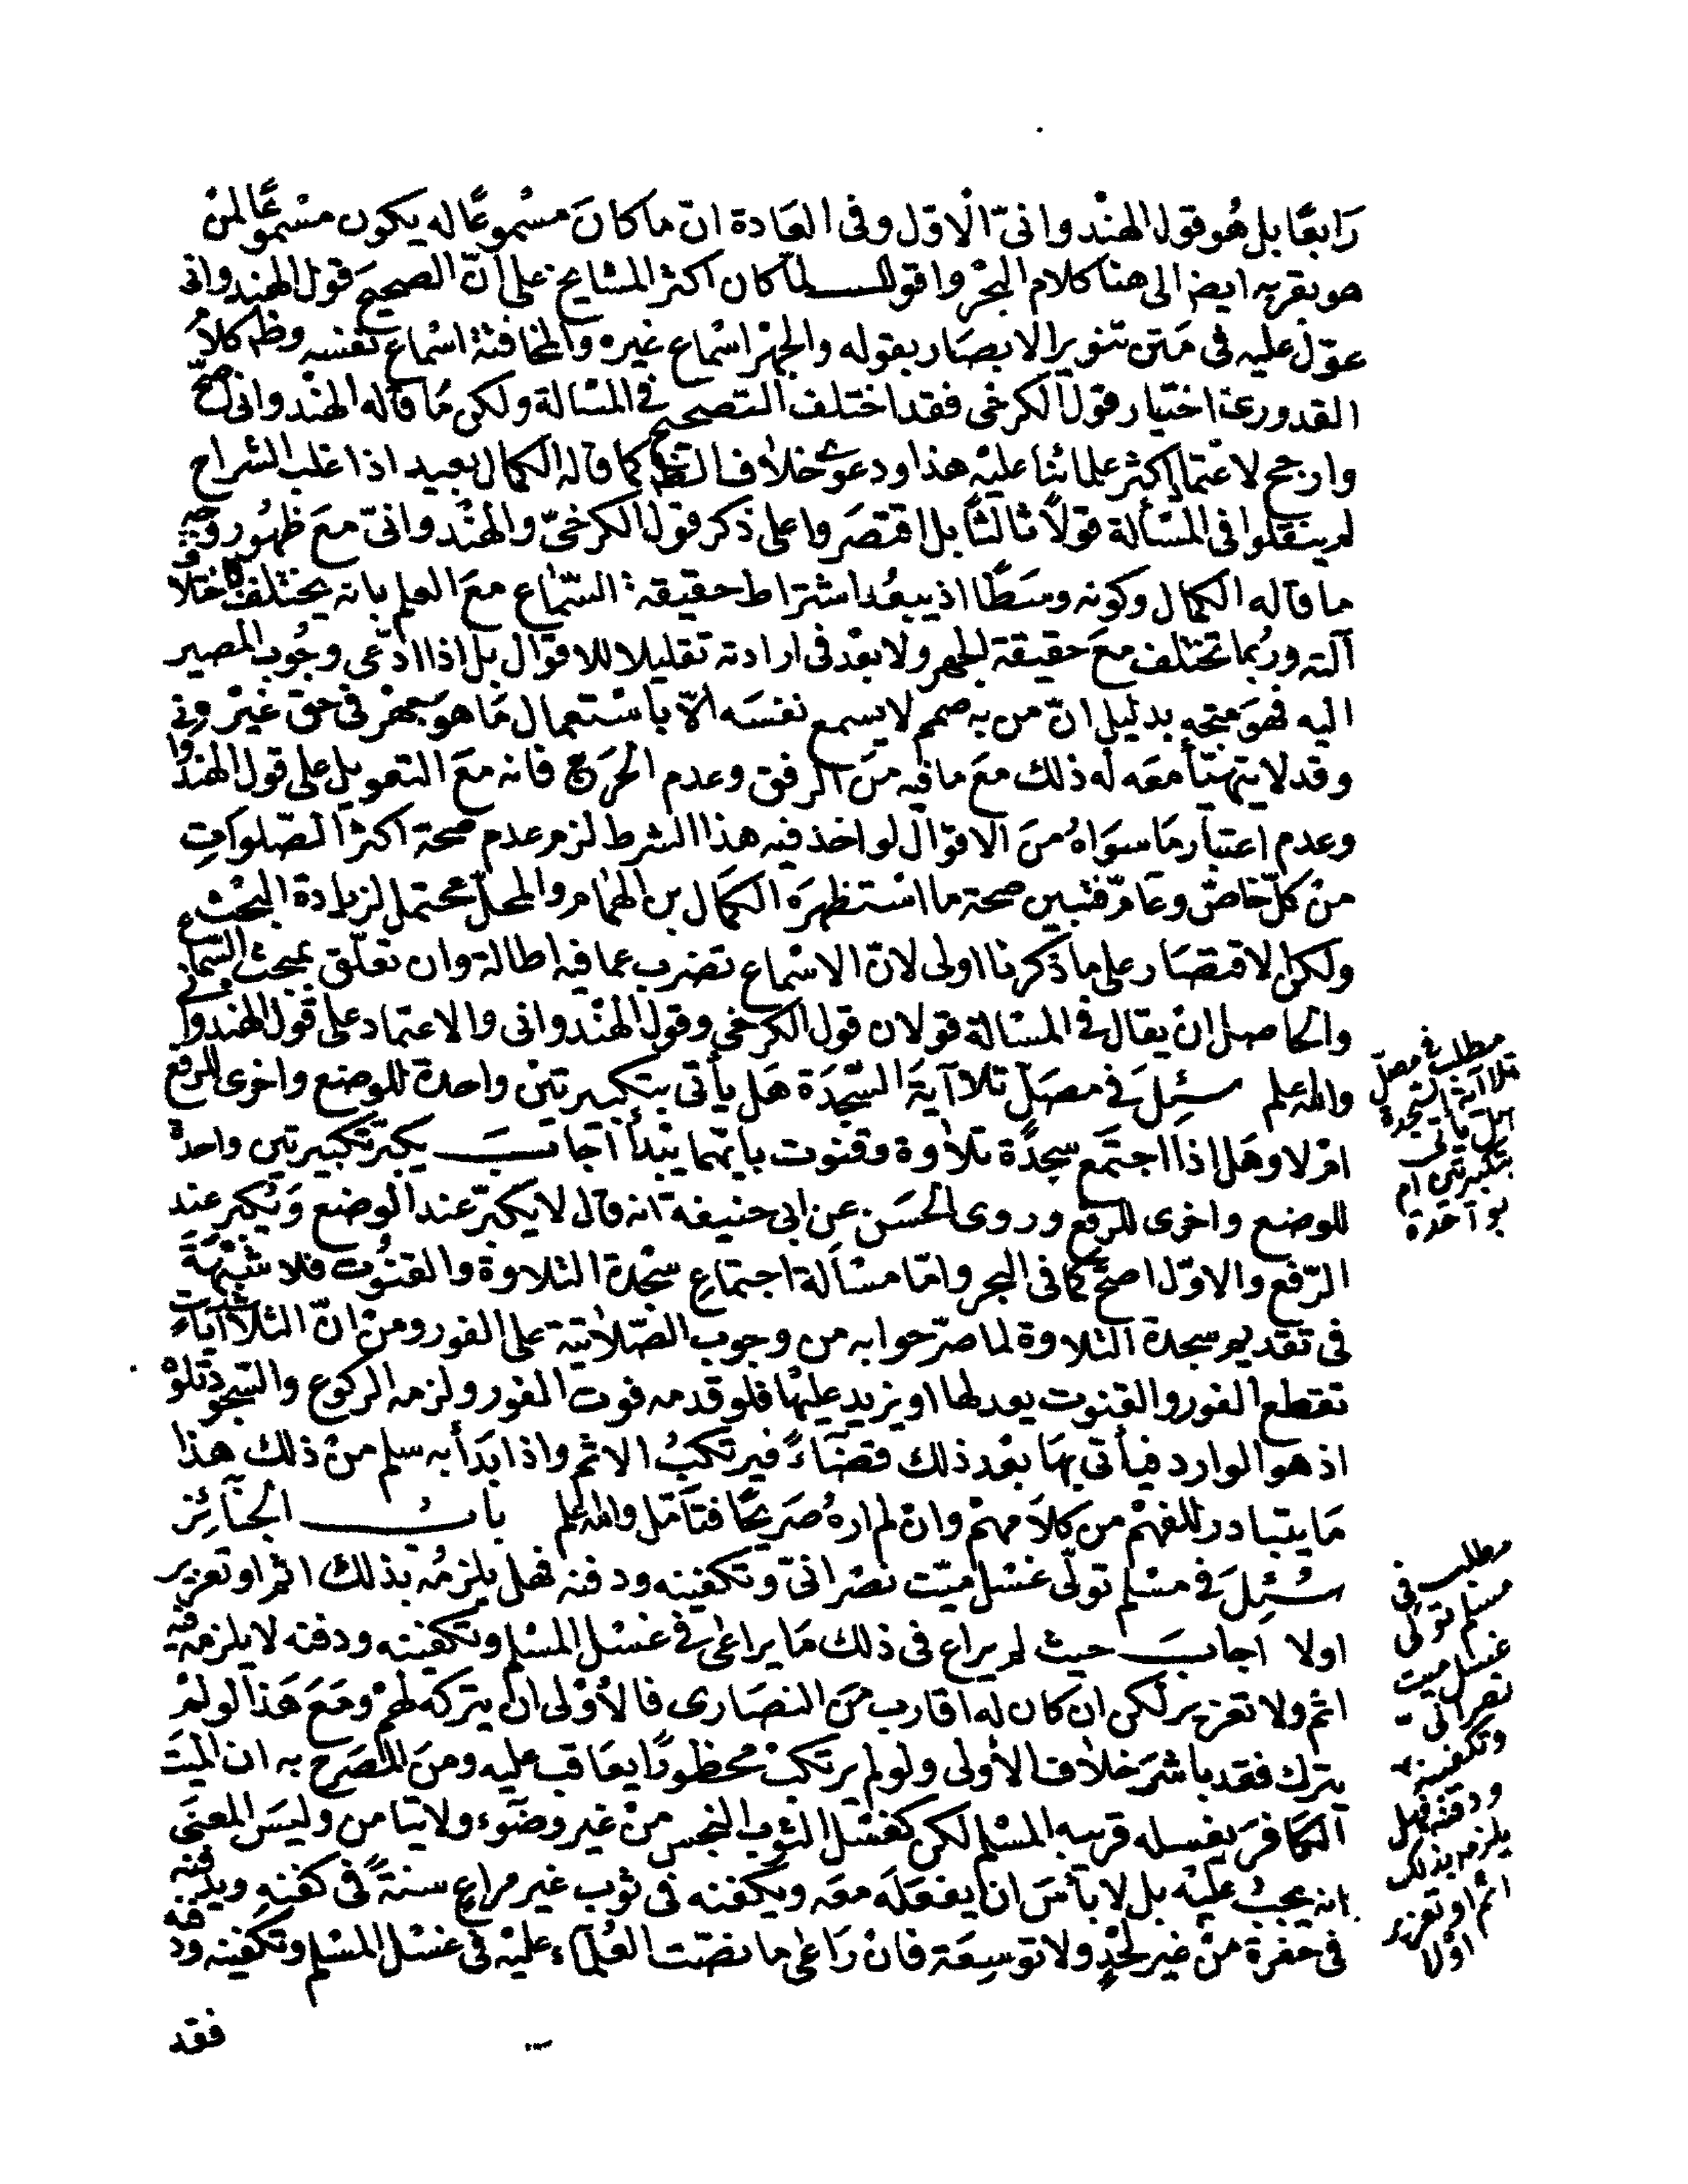 رَابعًا بل هُو قول الهنْدوانىّ الاوّل وفى العَادة انّ ما كانَ مسْموعًا له يكون مسْموعًا لمنْ
هو بقربه ايض الى هنا كلام البحْر واقول لمّا كان اكثر المشايخ على انّ الصحيحَ قول الهندوانى
عوّل عليه فى مَتن تنوير الابصَار بقوله والجهْر اسْماع غيره والمخافتة اسْماع نفسه وظ كلامُ
القدورى اختيار قول الكرخى فقد اختلف التصحيح فى المسْالة ولكن مَا قاله الهنْدوانى اصحّ
وارجح لاعتماد اكثر علمائنا عليْه هذا ودعوى خلاف الظ كما قاله الكمال بعيد اذ اغلب الشراح
لم ينقلوا فى المسْألة قولاً ثالثًا بل اقتصَروا على ذكر قول الكرخىّ والهنْدوانىّ معَ ظهُور وجه
ما قاله الكمال وكونه وسَطًا اذ يبعُد اشتراط حقيقة السّماع معَ العلم بانه يختلف باختلاف
آلته وربُما تختلف معَ حقيقة الجهر ولا بعْد فى ارادته تقليلا للاقوال بل اذا ادّعى وجُوب المصير
اليه فهوَ متجه بدليل انّ من به صمم لا يسمع نفسَه الاّ باسْتعمال مَا هوَ جهْر فى حق غيْره
وقد لا يتهيّأ معَه له ذلك معَ ما فيه منَ الرفق وعدم الحرَج فانه معَ التعويل على قول الهندوانى
وعدم اعتبار مَا سوَاهُ منَ الاقوَال لو اخذ فيه هذا الشرط لزم عدم صحة اكثر الصّلوات
منْ كلّ خاصّ وعَامّ فتبين صحة ما اسْتظهرَه الكمَال بن الهمَام والمحلّ محتمل لزيادة البحْث
ولكن الاقتصَار على ما ذكرنا اولى لانّ الاسْماع تضرب عما فيه اطالة وان تعلّق بمبحث السّماع
والحاصل انْ يقال فى المسْالة قولان قول الكرخى وقول الهنْدوانى والاعتماد على قول الهندوانى
والله اعلم سُئِلَ فى مصَلّ تلا آيَة السّجْدَة هَل يأتى بتكبيرتين واحدة للوضع واخرى للرفع
امْ لا وهَل اذا اجتمَع سجْدَة تلاوة وقنوت بايّهما يبْدأ اجابَ يكبّر تكبيرتين واحدة
للوضع واخرى للرفع وروى الحسَن عن ابى حنيفة انه قال لا يكبّر عند الوضع وَيُكبر عند
الرّفع والاوّل اصحّ كما فى البحر وامّا مسْألة اجتماع سجْدة التلاوة والقنوُت فلا شبْهَة
فى تقديم سجدة التلاوة لما صرّحوا به من وجوب الصّلاتية على الفور ومنْ انّ الثلاث آيات
تقطع الفور والقنوت يعدلها او يزيد عليْها فلو قدمه فوت الفور ولزمه الركوع والسّجود تلوْه
اذ هو الوارد فيأتى بهَا بعْد ذلك قضَاءً فيرتكبُ الاثم واذا بَدَأ به سلم منْ ذلك هذا
مَا يتبادر للفهْم من كلاَمهمْ وانْ لم ارهُ صَريحًا فتأمّل والله اعلم باب الجنَائِز
سُئِلَ فى مسْلم تولّى غسْل ميّت نصْرانىّ وتكفينه ودفنه فهل يلزمُه بذلك اثم او تعزير
اولا اجابَ حيث لم يراع فى ذلك مَا يراعٰى فى غسْل المسْلم وتكفينه ودفنه لا يلزمه فيه
اثم ولا تعزير لكن ان كان له اقارب منَ النصَارى فالأوْلى ان يتركه لهمْ ومَعَ هَذا لو لمْ
يترك فقد باشرَ خلاف الأولى ولو لم يرتكبْ محْظورًا يعَاقب عليه ومنَ المصَرح به ان الميّتَ
الكافرَ يغسله قريبه المسْلم لكن كغسْل الثوب النجس منْ غير وضوء ولا تيامن وليسَ المعنَى
انه يجبُ عليْه بل لا بأسَ ان يفعَلَه معَه ويكفنه فى ثوب غير مراعٍ سنةً فى كفنه ويدفنه
فى حفرة منْ غير لحْدٍ ولا توسِعَة فانْ رَاعٰى ما نصّت العُلمآء عليْه فى غسْل المسْلم وتكفينه ودفنه
فقد
مطلب فى مصلّ
تلا آية السّجدة
هل يأتى
بتكبيرتين ام
بواحدة
مطلب فى
مسْلم تولى
غسل ميت
نصرانى
وتكفينه
ودفنه فهل
يلزمه بذلك
اثم او تعزير
اولا